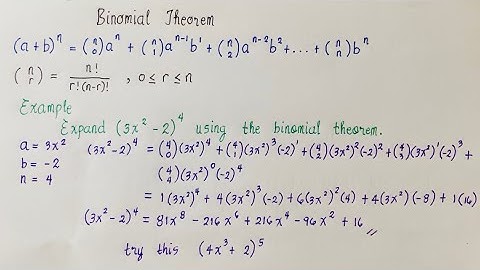 Binomial Theorem
(a + b)ⁿ = (n 0) aⁿ + (n 1) aⁿ⁻¹ b¹ + (n 2) aⁿ⁻² b² + ... + (n n) bⁿ
(n r) = n! / r!(n-r)! , 0 ≤ r ≤ n
Example
Expand (3x² - 2)⁴ using the binomial theorem.
a = 3x² (3x² - 2)⁴ = (4 0)(3x²)⁴ + (4 1)(3x²)³(-2)¹ + (4 2)(3x²)²(-2)² + (4 3)(3x²)¹(-2)³ +
b = -2 (4 4)(3x²)⁰(-2)⁴
n = 4
= 1(3x²)⁴ + 4(3x²)³(-2) + 6(3x²)²(4) + 4(3x²)(-8) + 1(16)
(3x² - 2)⁴ = 81x⁸ - 216x⁶ + 216x⁴ - 96x² + 16
try this (4x³ + 2)⁵